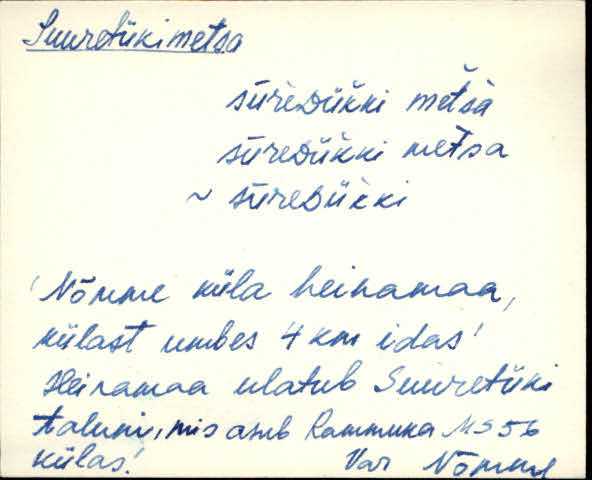 Suuretükimetsa
sūreDük̆ki met̆sa
sūreDük̆ki met̆sa
~ sūreDük̆ki
'Nõmme küla heinamaa,
külast umbes 4 km idas'
Heinamaa ulatub Suuretüki
taluni, mis asub Rammuka MS 56
külas.'
Var Nõmme